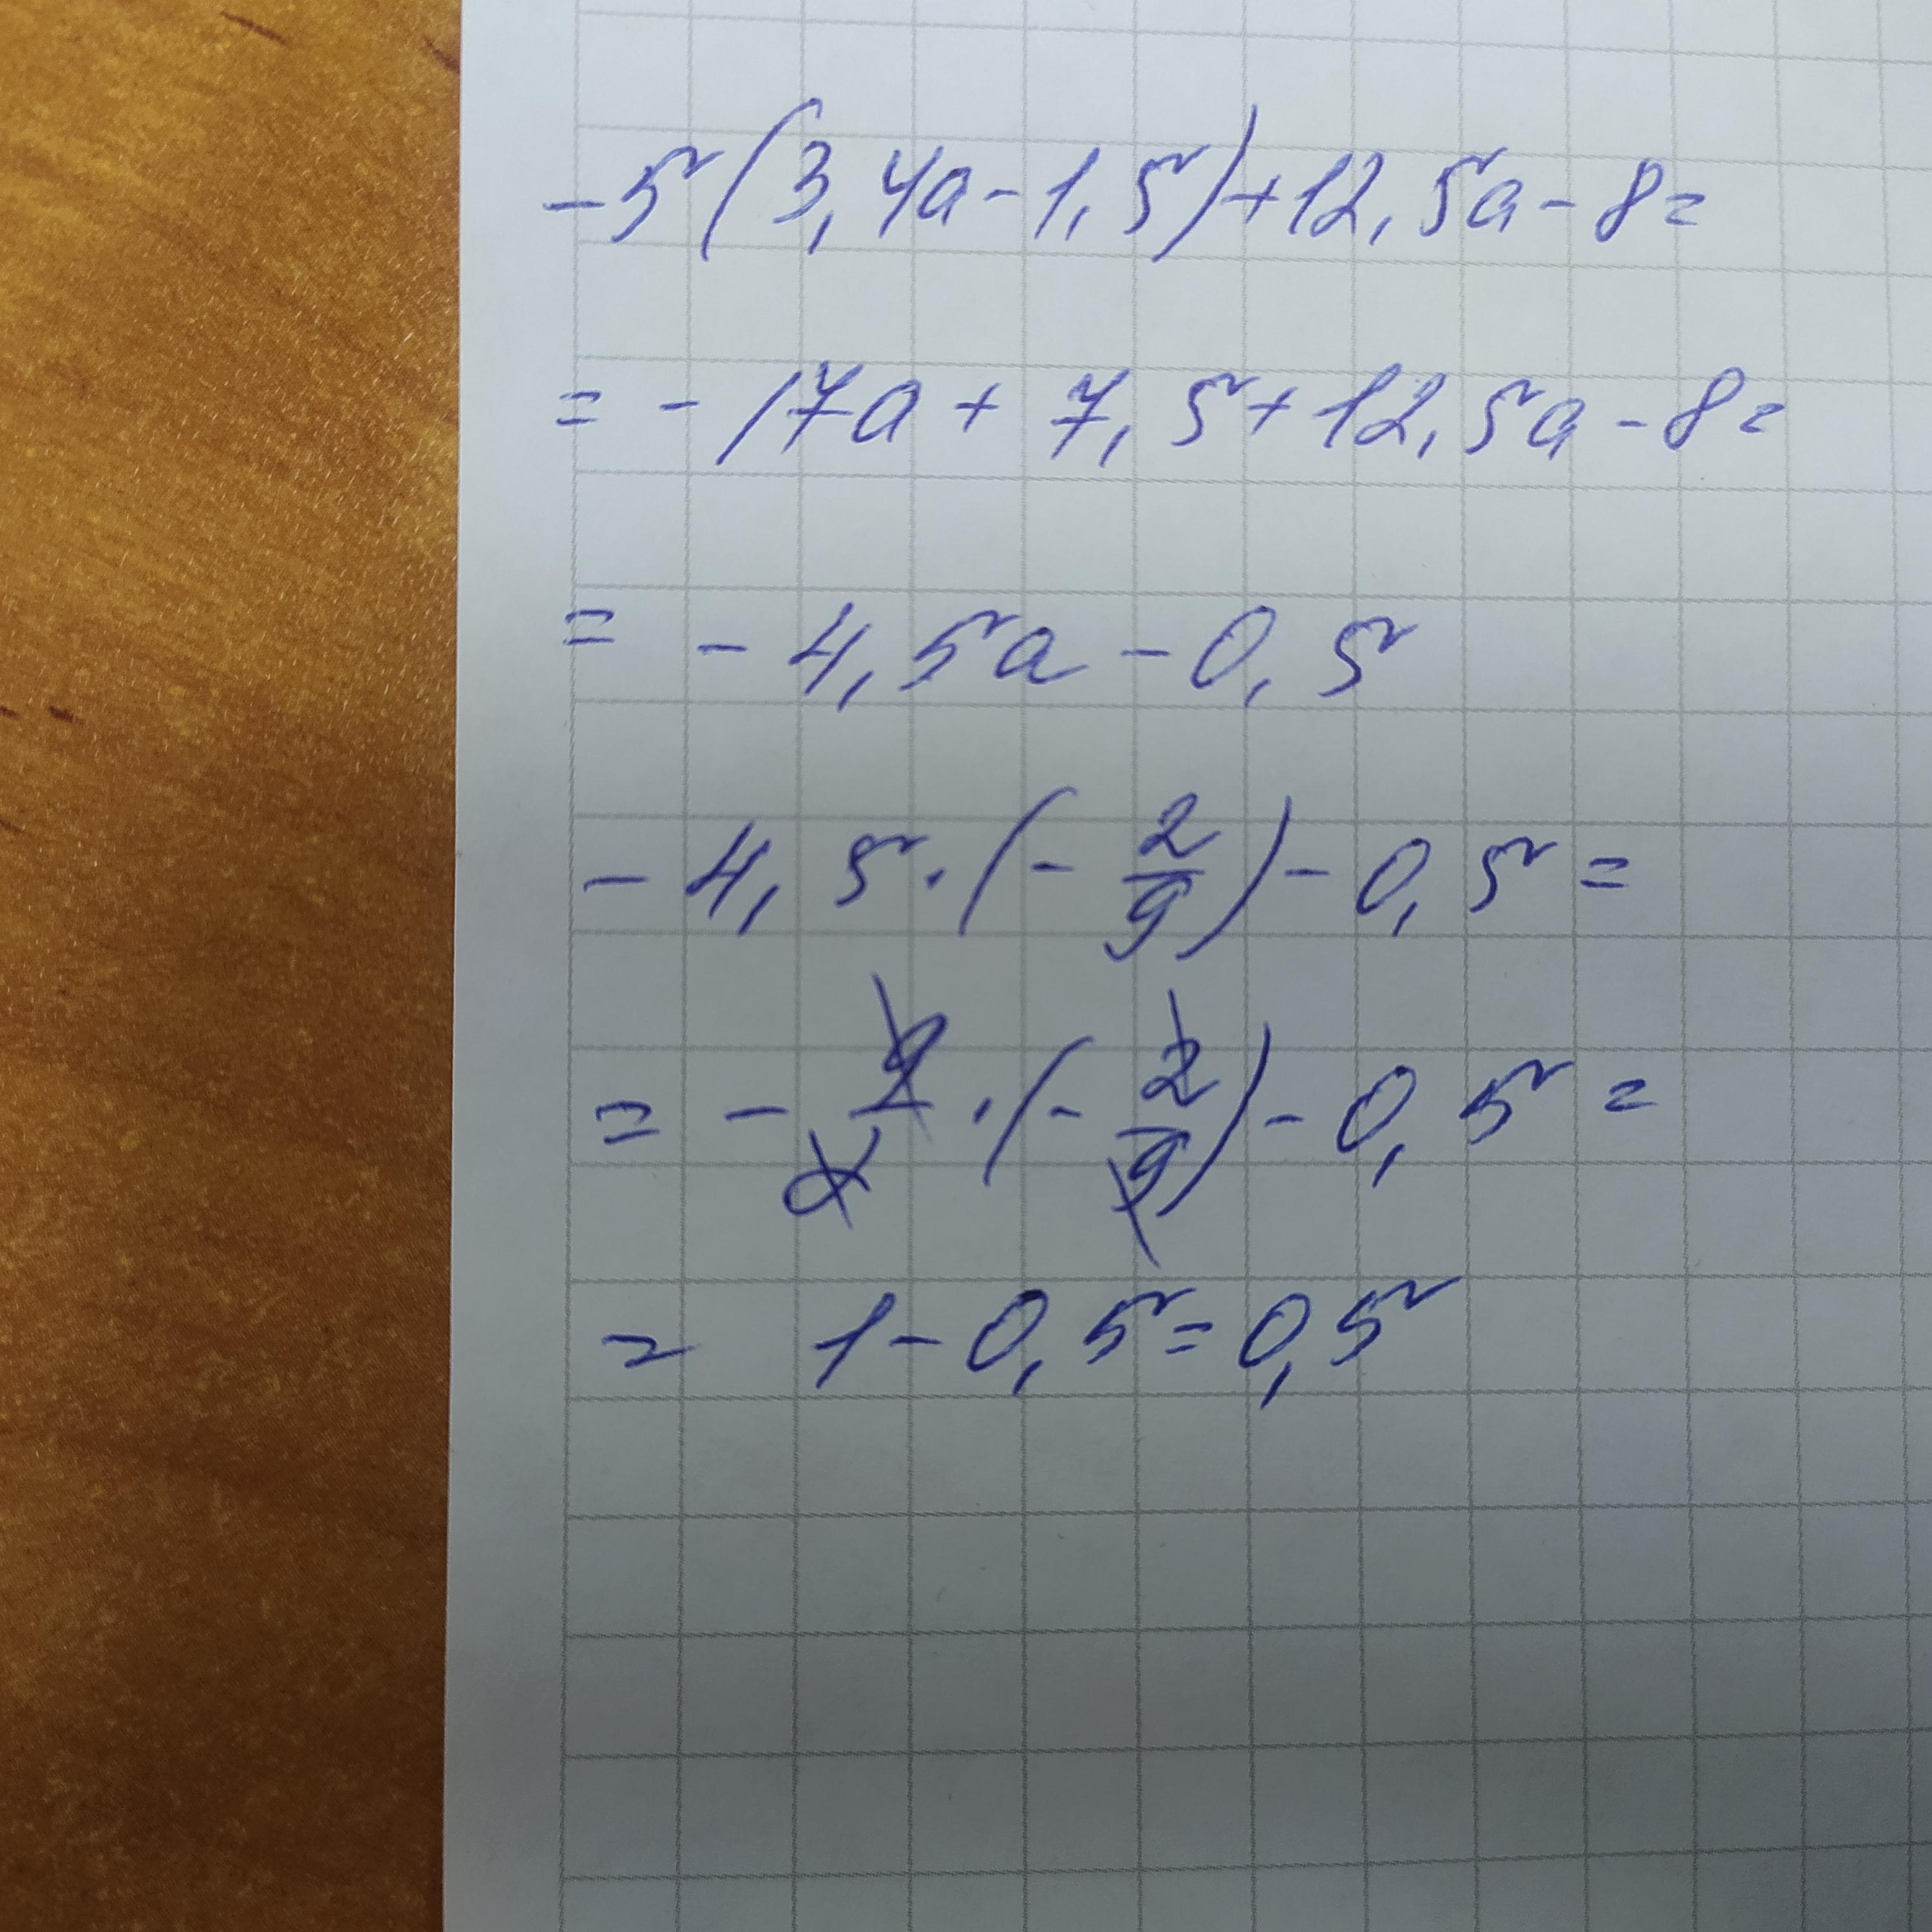 -5(3,4a-1,5)+12,5a-8=
=-17a+7,5+12,5a-8=
=-4,5a-0,5
-4,5·(-2/9)-0,5=
=-9/2·(-2/9)-0,5=
=1-0,5=0,5